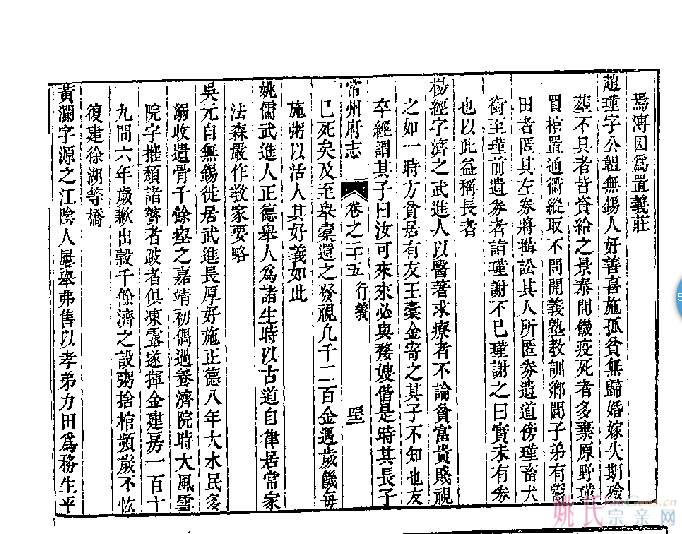 焉溥因爲置義莊
趙瑾字公韞無錫人好善喜施孤貧無歸婚嫁失期殮
葬不具者皆資給之景泰間饑疫死者多棄原野瑾
買棺置通衢縱取不問開義塾教訓鄉閭子弟有鬻
田者匿其左券將搆訟其人所匿券遺道傍瑾畜犬
銜至瑾前遺券者詣瑾謝不巳瑾謝之曰實未有券
也以此益稱長者
楊經字濟之武進人以醫著求療者不論貧富貴賤視
之如一時方貧居有友王槖金寄之其子不知也友
卒經謂其子曰汝可來來必與嫂偕是時其長子
常州府志
卷之二十五
行義
已死矣及至舉槖還之發視凡千二百金遇歲饑每
施粥以活人其好義如此
姚儒武進人正德舉人爲諸生時以古道自律居常家
法森嚴作敎家要略
吳元自無錫徙居武進長厚好施正德八年大水民多
溺收遺骨千餘瘞之嘉靖初偶過養濟院時大風雪
院字摧頹諸窶者跛者俱凍露遂捐金建房一百十
九間六年歲歉出穀千餘濟之設粥捨棺頻歲不怠
復建徐湖等橋
黃瀾字源之江陰人屢舉弗售以孝弟力田爲務生平
姚氏宗亲网